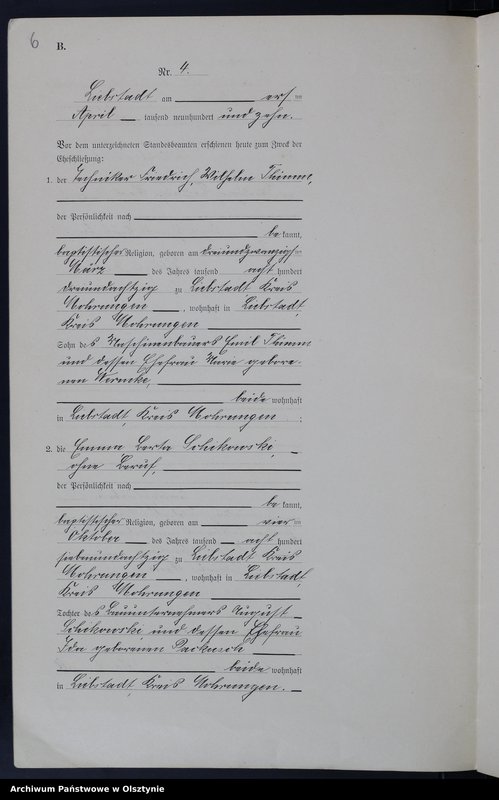 6
B.
Nr. 4.
Liebstadt am ersten
April tausend neunhundert und zehn.
Vor dem unterzeichneten Standesbeamten erschienen heute zum Zweck der
Eheschließung:
1. der Techniker Friedrich, Wilhelm Thimm,
der Persönlichkeit nach
bekannt,
baptistischer Religion, geboren am dreiundzwanzigsten
März des Jahres tausend acht hundert
dreiundachtzig zu Liebstadt Kreis
Mohrungen, wohnhaft in Liebstadt,
Kreis Mohrungen
Sohn des Maschinenbauers Emil Thimm
und dessen Ehefrau Marie gebore-
nen Wernicke,
beide wohnhaft
in Liebstadt, Kreis Mohrungen;
2. die Emma Berta Schikowski,
ohne Beruf,
der Persönlichkeit nach
bekannt,
baptistischer Religion, geboren am vierten
Oktober des Jahres tausend acht hundert
siebenundachtzig zu Liebstadt Kreis
Mohrungen, wohnhaft in Liebstadt,
Kreis Mohrungen
Tochter des Bauunternehmers August
Schikowski und dessen Ehefrau
Ida geborenen
beide wohnhaft
in Liebstadt, Kreis Mohrungen.
Archiwum Państwowe w Olsztynie